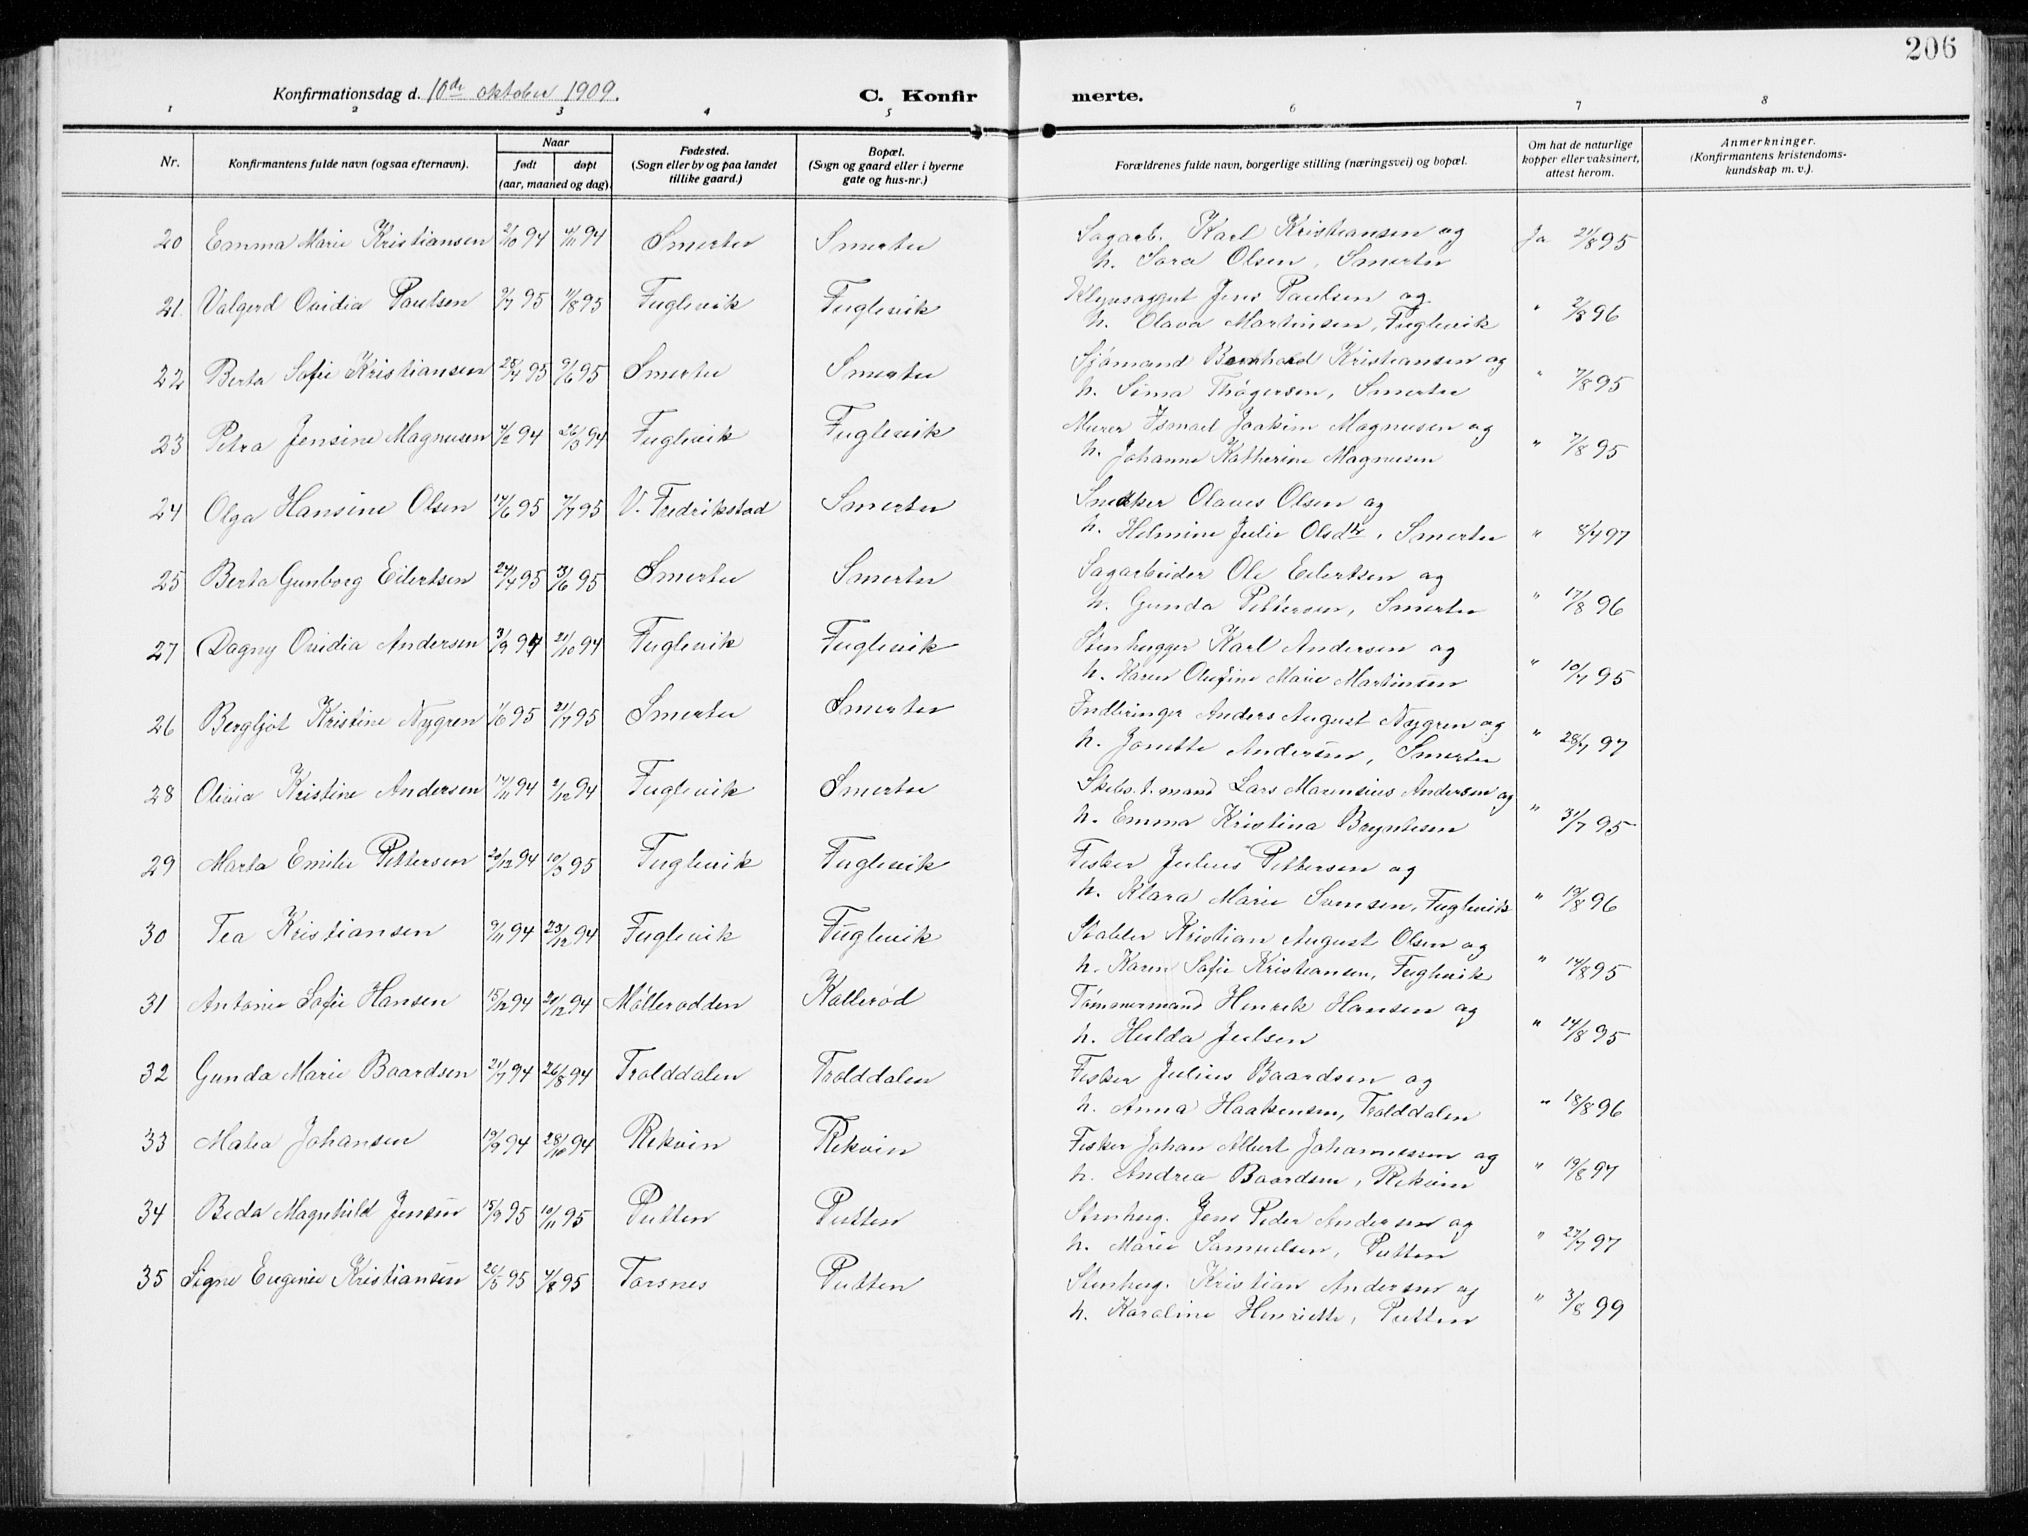 206
Konfirmationsdag d. 10de oktober 1909.
C. Konfirmerte.
1 2 3 4 5 6 7 8
Nr. Konfirmantens fulde navn (ogsaa efternavn). Naar født døpt (aar, maaned og dag). Fødested. (Sogn eller by og paa landet tillike gaard.) Bopæl. (Sogn og gaard eller i byerne gate og hus-nr.) Forældrenes fulde navn, borgerlige stilling (næringsvei) og bopæl. Om hat de naturlige kopper eller vaksinert, attest herom. Anmerkninger. (Konfirmantens kristendomskundskap m. v.).
20 Emma Marie Kristiansen 2/10 94 4/11 94 Smerter Smerter Sagarb. Karl Kristiansen og Ja 21/8 95
h. Sara Olsen, Smerter
21 Valgerd Ovidia Paulsen 9/7 95 11/8 95 Fuglevik Fuglevik Jens Paulsen og
h. Olava Martinsen, Fuglevik " 2/8 96
22 Berta Sofie Kristiansen 28/4 95 9/6 95 Smerter Smerter Sjømand Bernhard Kristiansen og
h. Sina Thøgersen, Smerter " 7/8 95
23 Petra Jensine Magnusen 4/2 94 26/3 94 Fuglevik Fuglevik Murer Ismael Joakim Magnusen og
h. Johanne Katherine Magnusen " 7/8 95
24 Olga Hansine Olsen 17/6 95 7/7 95 V. Fredrikstad Smerter Snekker Olaves Olsen og
h. Helmine Julie Olsdtr, Smerter " 8/7 97
25 Berta Gunborg Eilertsen 24/4 95 3/6 95 Smerter Smerter Sagarbeider Ole Eilertsen og
h. Gunda Pettersen, Smerter " 17/8 96
27 Dagny Ovidia Andersen 3/9 94 21/10 94 Fuglevik Fuglevik Stenhugger Karl Andersen og
h. Karen Olufine Marie Martinsen " 10/7 95
26 Bergljot Kristine Nygren 1/6 95 21/7 95 Smerter Smerter Indbringer Anders August Nygren og
h. Jonette Andersen, Smerter " 28/7 97
28 Olivia Kristine Andersen 17/11 94 2/12 94 Fuglevik Smerter Skibst.mand Lars Marensius Andersen og
h. Emma Kristina Bryntesen " 31/7 95
29 Marta Emilie Pettersen 20/12 94 10/3 95 Fuglevik Fuglevik Fisker Julius Pettersen og
h. Klara Marie Svensen, Fuglevik " 19/8 96
30 Tea Kristiansen 9/11 94 23/12 94 Fuglevik Fuglevik Stabler Kristian August Olsen og
h. Karen Sofie Kristiansen, Fuglevik " 14/8 95
31 Antonie Sofie Hansen 15/12 94 21/12 94 Møllerodden Kallerød Tømmermand Henrik Hansen og
h. Hulda Julsen " 14/8 95
32 Gunda Marie Baardsen 21/7 94 26/8 94 Trolddalen Trolddalen Fisker Julius Baardsen og
h. Anna Haakensen, Trolddalen " 18/8 96
33 Matea Johansen 19/9 94 28/10 94 Rekvin Rekvin Fisker Johan Albert Johannessen og
h. Andrea Baardsen, Rekvin " 19/8 97
34 Beda Magnhild Jensen 15/9 95 10/11 95 Putten Putten Stenhug. Jens Peder Andersen og
h. Marie Samuelsen, Putten " 27/7 97
35 Signe Eugenie Kristiansen 26/5 95 4/8 95 Torsnes Putten Stenhug. Kristian Andersen og
h. Karoline Henriette, Putten " 3/8 99